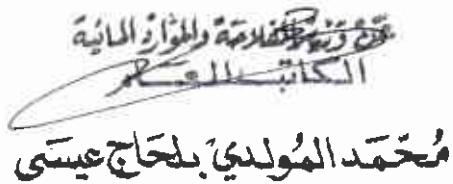 عن وزير الفلاحة والموارد المائية
الكاتب العام
مُحَمَّد المُولدي بلحَاج عيسَى